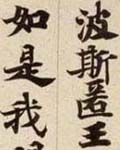 波斯匿王
如是我